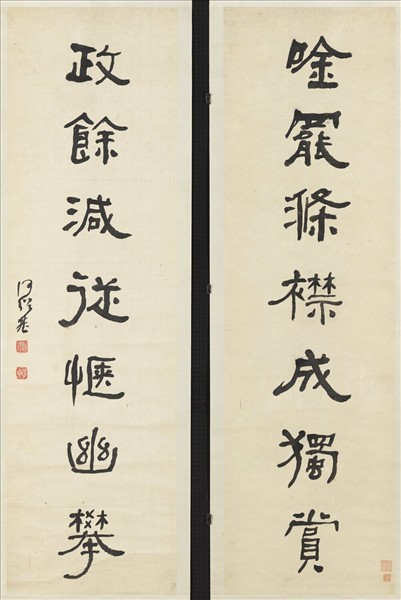 唫罷滌襟成獨賞
政餘減從愜幽攀
何紹基